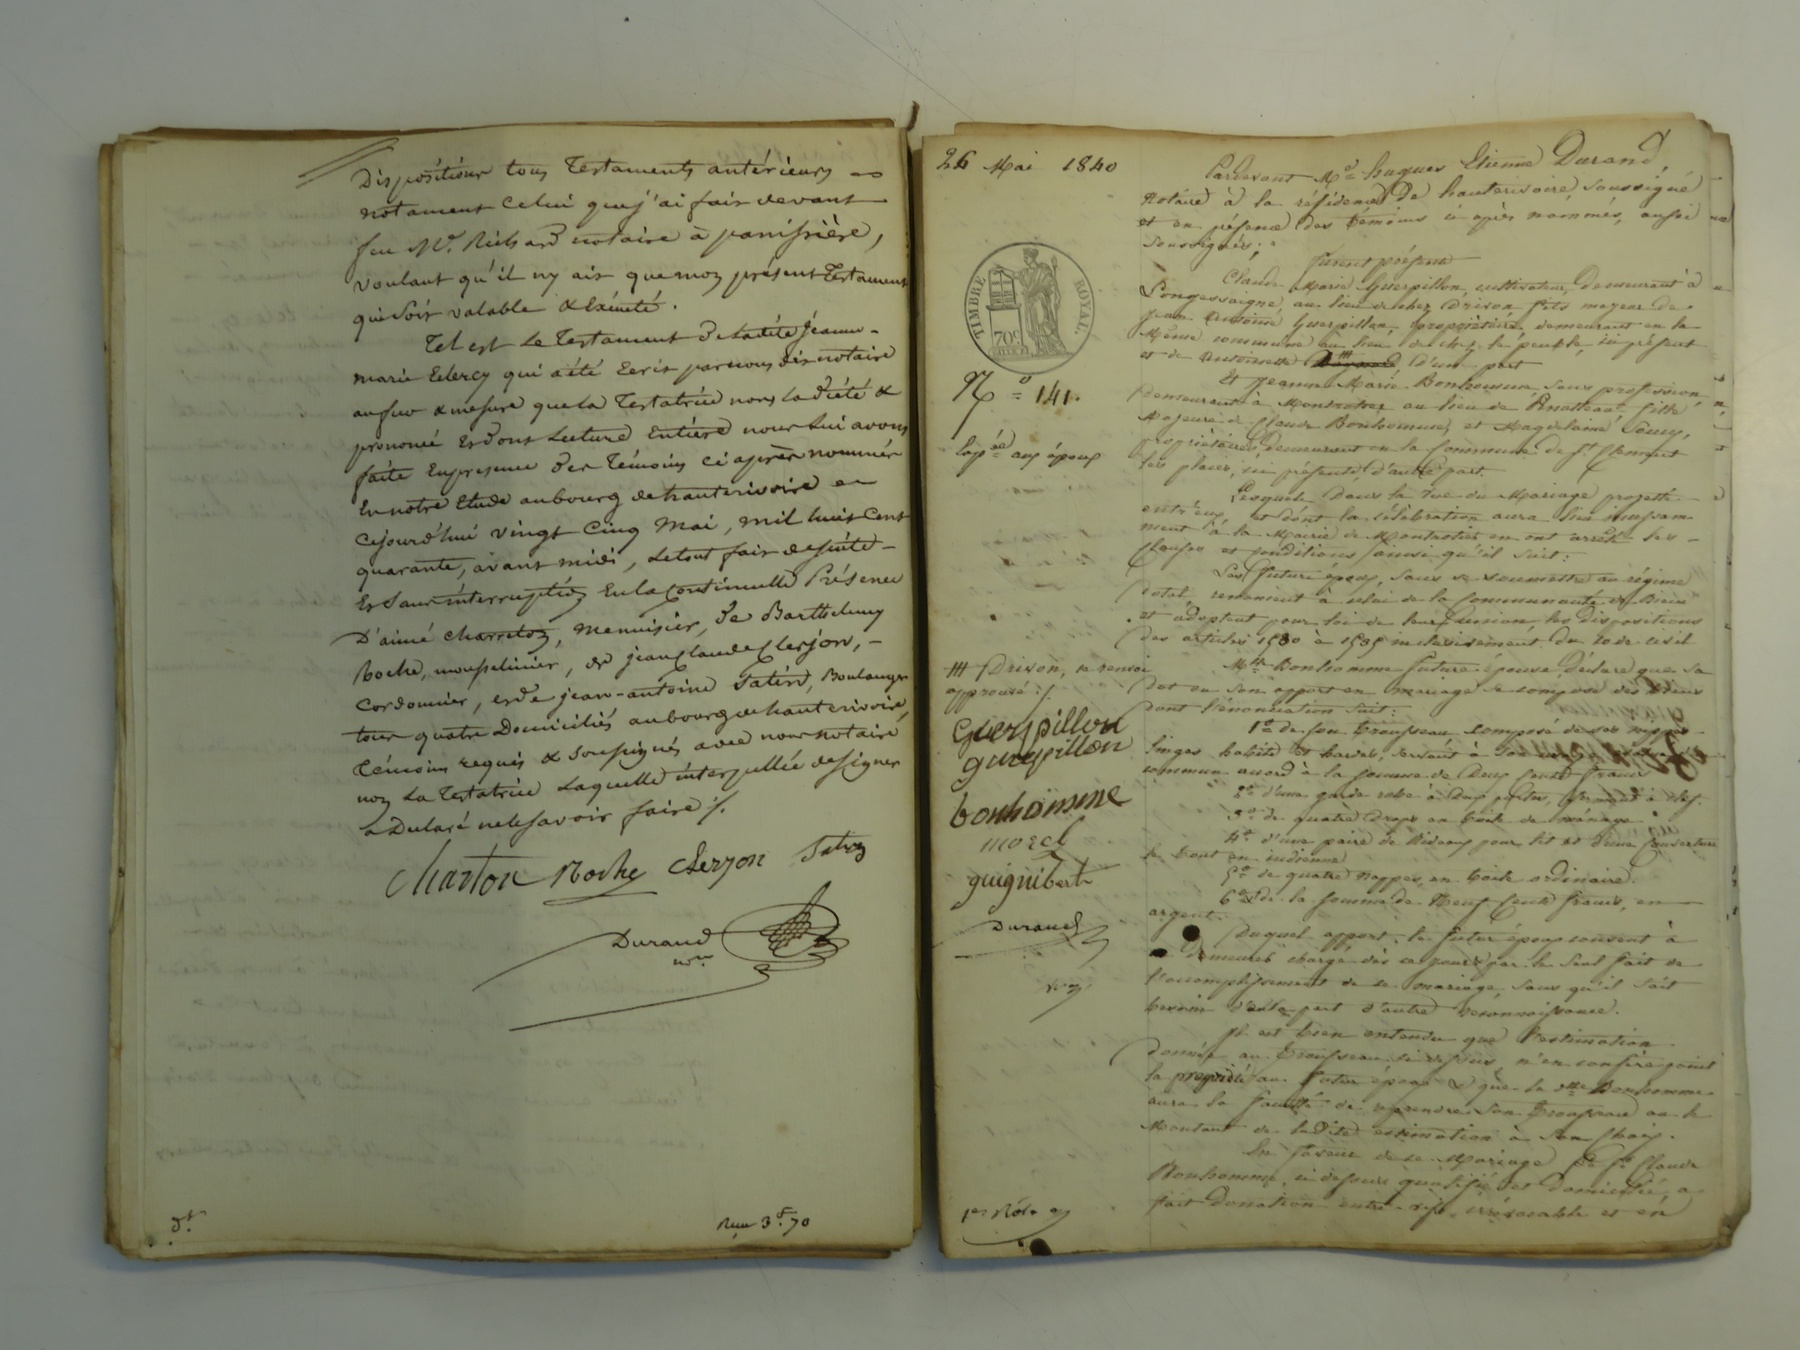 Dispositions tous Testaments antérieurs
notament celui que j'ai fait devant
feu Me. Richard notaire à panissière,
voulant qu'il ny ait que mon présent Testament
qui soit valable & Exécuté.
Tel est le Testament de ladite jeanne-
marie qui a été Ecrit par nous dit notaire
au fur & mesure que la Testatrice nous la dicté &
prononcé Et dont Lecture Entière nous lui avons
faite En présence des Témoins ci après nommés
En notre Etude au bourg de hauterivoire
cejourd'hui vingt cinq Mai, mil huit cent
quarante, avant midi, le tout fait de suite
Et sans interruption En la continuelle Présence
D'aimé charreton, menuisier, de Barthelemy
Roche, mousselinier, de jean Claude Clerjon,
Cordonnier, et de jean-antoine satin, Boulanger
tous quatre Domiciliés au bourg de hauterivoire,
Témoins requis & soussignés avec nous notaire
non la Testatrice Laquelle interpellée de signer
a Déclaré ne le savoir faire ./.
Charton Roche Clerjon Satin
Durand
nre
dt.
Reçu 3f.70
26 Mai 1840
TIMBRE ROYAL.
70c
No 141.
aux époux
Drison, ce renvoi
approuvé ./.
guerpillon
guerpillon
bonhomme
morel
guignibert
Durand
1er Rôle
Pardevant Me hugues Etienne Durand,
Notaire à la résidence De hauterivoire, soussigné
et en présence des témoins ci après nommés, aussi
soussignés;
furent présents
Claude Marie Guerpillon, cultivateur, demeurant à
Longessaigne, au lieu de chez Drison fils majeur de
Jean Antoine Guerpillon, propriétaire, demeurant en la
Même commune au lieu de chez le peuple, ici présent
et de Antoinette d'une part
Et Jeanne Marie Bonhomme, sans profession,
demeurant à Montrottier au lieu de fille
Majeure de Claude Bonhomme, et Magdelaine
propriétaires, demeurant en la Commune de St Clement
les places, ici présents, d'autre part.
Lesquels dans la vue du Mariage projetté
entr'eux, et dont la célébration aura lieu incessam-
ment à la Mairie de Montrottier en ont arrêté les
Clauses et conditions ainsi qu'il suit:
Les futurs époux, sans se soumettre au régime
dotal, renoncent à celui de la Communauté de Biens
et adoptent pour loi de leur union, les dispositions
des articles 1530 à 1535 inclusivement du Code civil
Mlle Bonhomme future épouse, déclare que sa
dot ou son apport en mariage se compose des biens
dont l'énonciation suit:
1o de son trousseau composé de ses
linges habits et hardes, servant à son usage
commun accord à la somme de Deux Cents francs
2o d'une garde robe à deux portes, fermant à clef.
3o de quatre draps en toile de ménage.
4o d'une paire de Rideaux pour lit et d'une Couverture
le tout en indienne
5o de quatre nappes, en toile ordinaire.
6o de la somme de Neuf Cents francs, en
argent.
Duquel apport, le futur époux consent à
demeurer chargé dès ce jour par le seul fait de
l'accomplissement de ce mariage, sans qu'il soit
besoin d'autre part d'autre reconnaissance.
Il est bien entendu que l'estimation
donnée au trousseau ci dessus n'en confère point
la propriété au futur époux & que la dlle Bonhomme
aura la faculté de reprendre son trousseau ou le
Montant de ladite estimation à son choix.
En faveur de ce Mariage le Sr Claude
Bonhomme, ci dessus qualifié et domicilié, a
fait Donation entre-vifs irrévocable et en